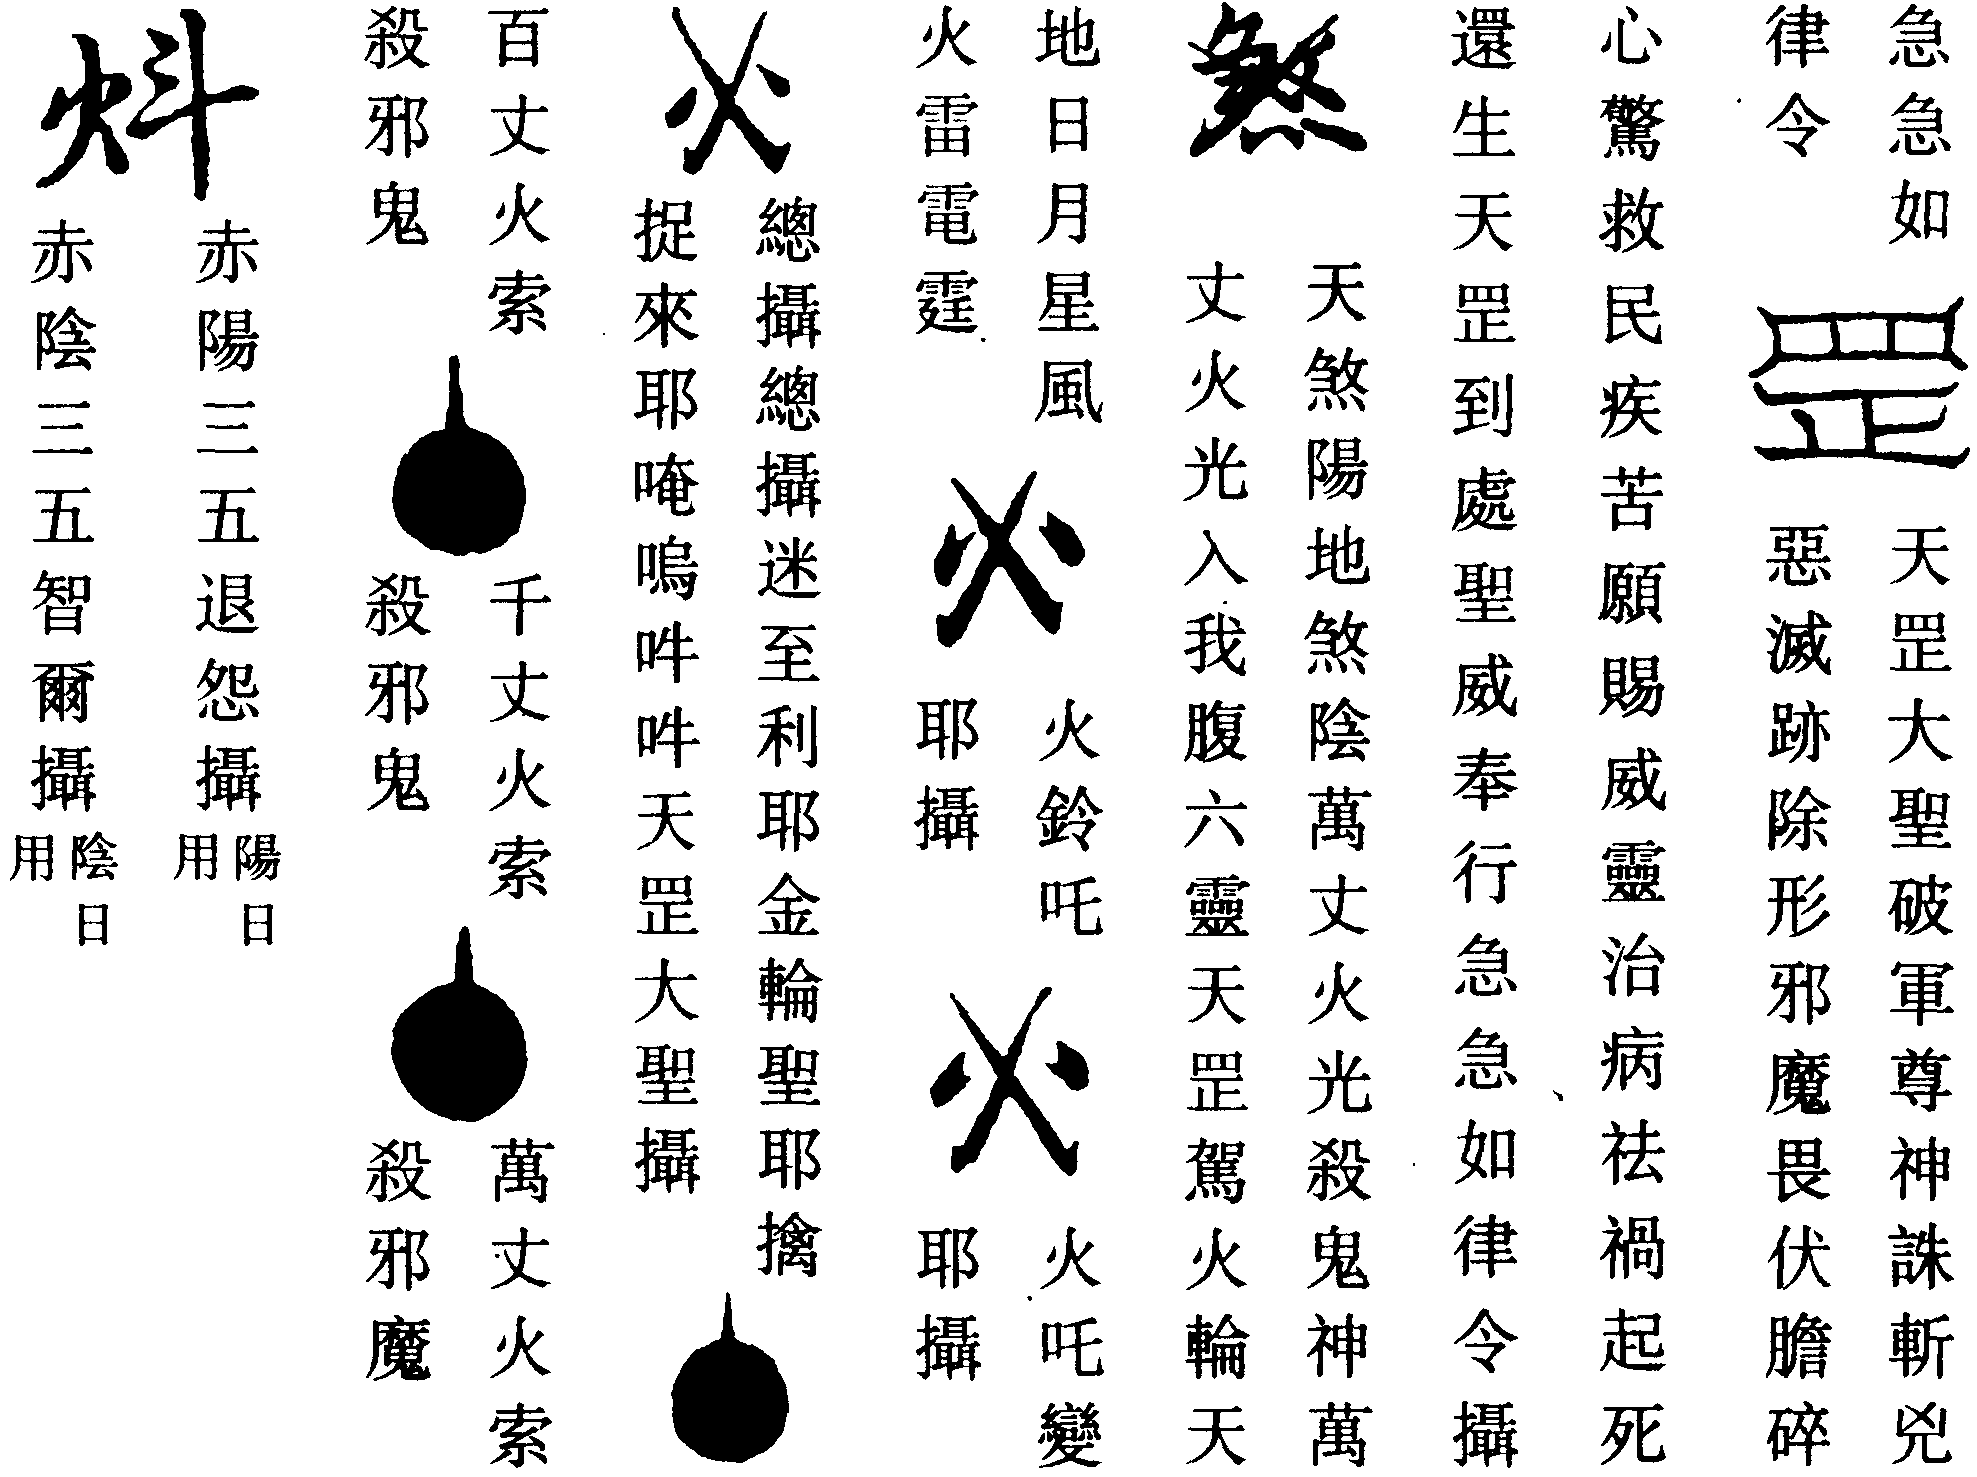 急急如
律令
罡
天罡大聖破軍尊神誅斬兇
惡滅跡除形邪魔畏伏膽碎
心驚救民疾苦願賜威靈治病祛禍起死
還生天罡到處聖威奉行急急如律令攝
煞
天煞陽地煞陰萬丈火光殺鬼神萬
丈火光入我腹六靈天罡駕火輪天
地日月星風
火雷電霆
火
火鈴吒
耶攝
火
火吒變
耶攝
火
總攝總攝迷至利耶金輪聖耶擒
捉來耶唵嗚吽吽天罡大聖攝
百丈火索
殺邪鬼
千丈火索
殺邪鬼
萬丈火索
殺邪魔
㶨
赤陽三五退怨攝
陽日
用
赤陰三五智爾攝
陰日
用